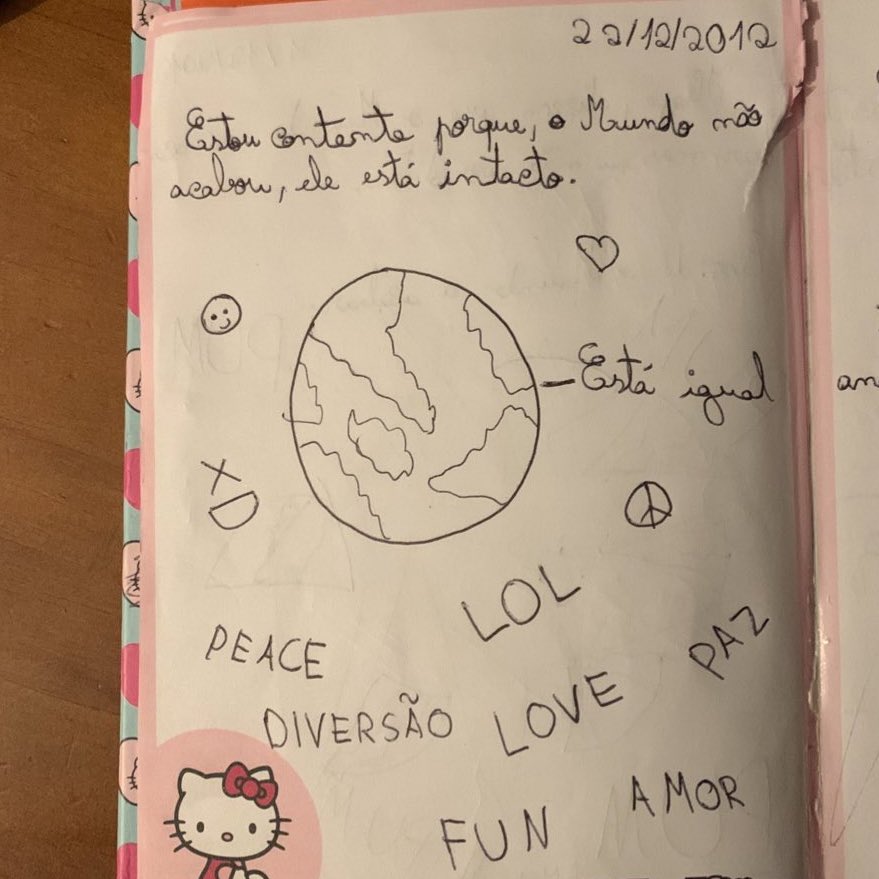 22/12/2012
Estou contente porque, o Mundo não
acabou, ele está intacto.
Está igual
an
XD
LOL
PEACE
PAZ
DIVERSÃO
LOVE
AMOR
FUN